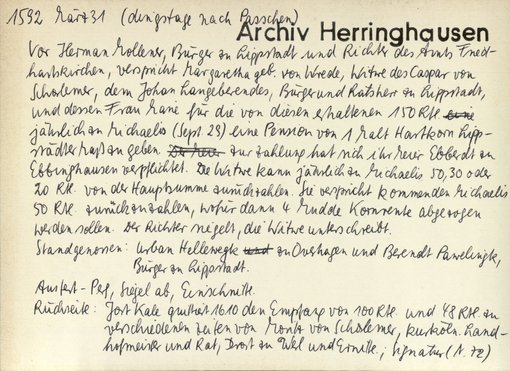 1592 März 31 (dingstags nach Passchen)
Archiv Herringhausen
Vor Herman Mollener, Bürger zu Lippstadt und Richter des Amts Fried-
hartskirchen, verspricht Margaretha geb. von Wrede, Witwe des Caspar von
Schorlemer, dem Johan Langeberendes, Bürger und Ratsherr zu Lippstadt,
und dessen Frau Marie für die von diesen erhaltenen 150 Rtl. eine
jährlich zu Michaelis (Sept. 29) eine Pension von 1 Malt Hartkorn Lipp-
städter Maß zu geben. zur Zahlung hat sich ihr Meier Ebberdt zu
Ebbinghausen verpflichtet. Die Witwe kann jährlich zu Michaelis 50, 30 oder
20 Rtl. von der Hauptsumme zurückzahlen. Sie verspricht kommenden Michaelis
50 Rtl. zurückzuzahlen, wofür dann 4 Mudde Kornrente abgezogen
werden sollen. Der Richter siegelt, die Witwe unterschreibt.
Standgenossen: Urban Hellewegk und zu Overhagen und Berendt Pawelingk,
Bürger zu Lippstadt.
Ausf.- Perg., Siegel ab, Einschnitte.
Rückseite: Jost Kale quittiert 1610 den Empfang von 100 Rtl. und 48 Rtl. zu
verschiedenen Zeiten von Moritz von Schorlemer, kurköln. Land-
hofmeister und Rat, Drost zu Werl und ; Signatur (N. 72)